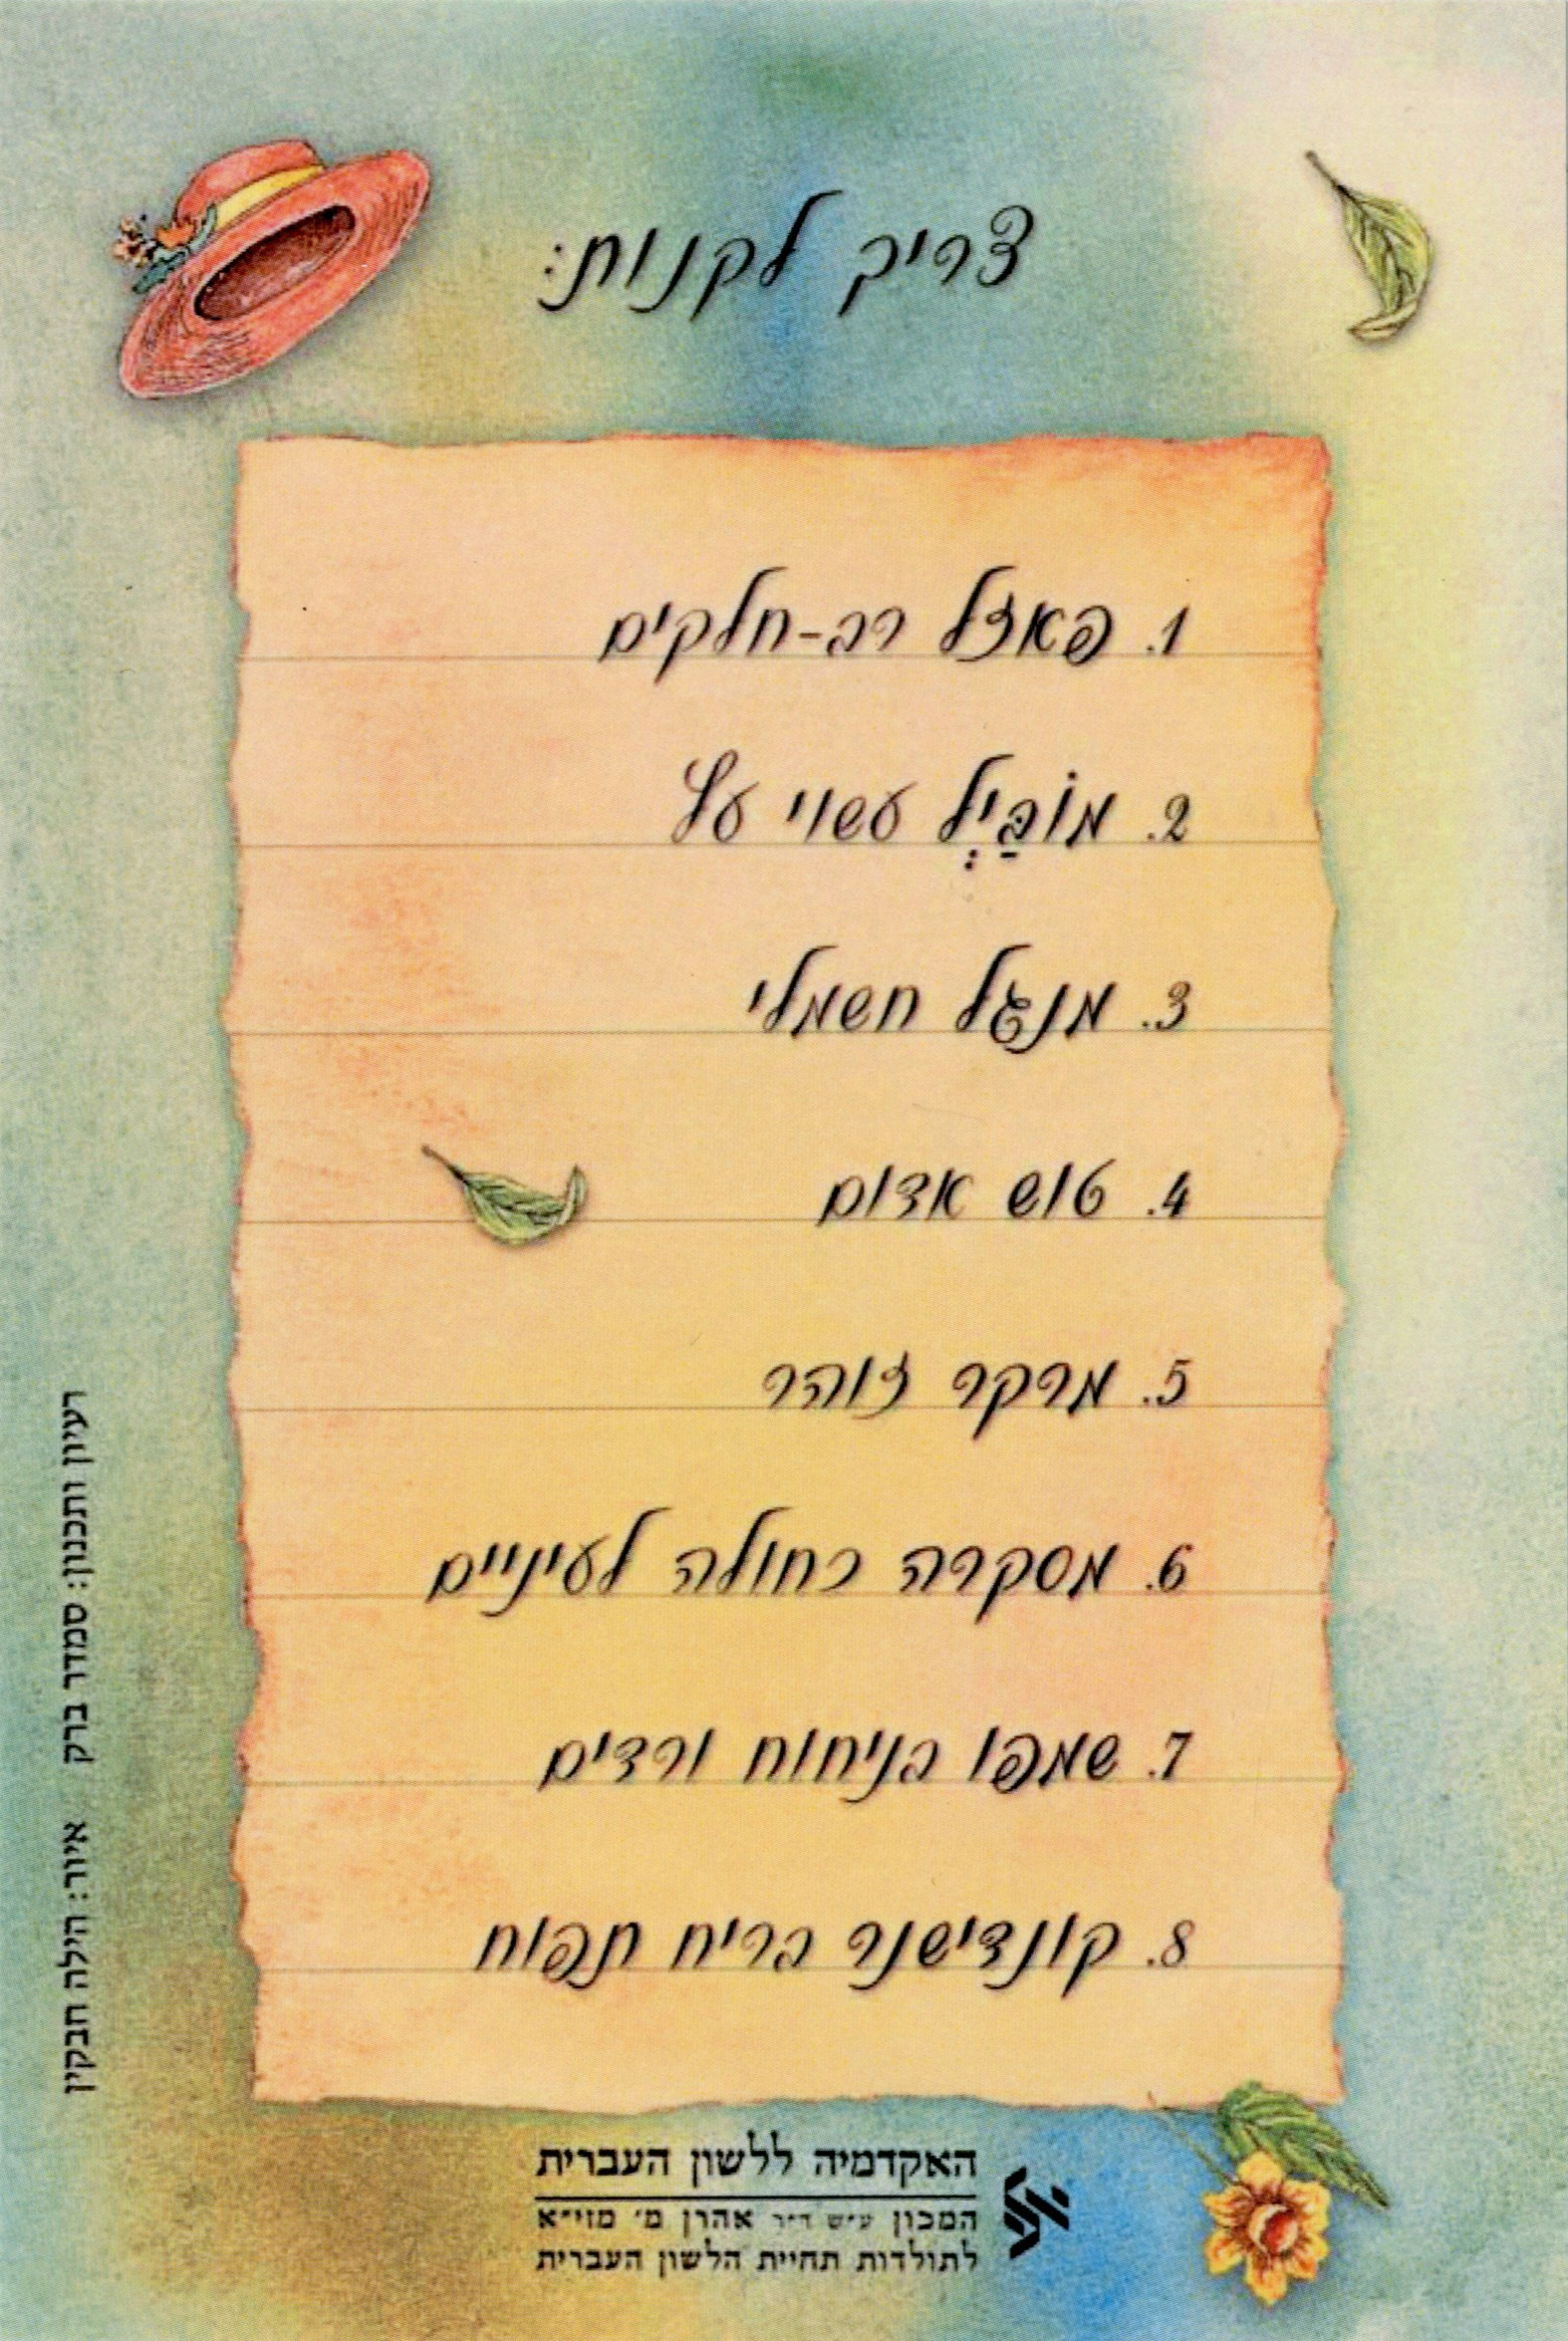 צריך לקנות:
1. פאזל רב-חלקים
2. מוֹבַּיְל עשוי עץ
3. מנגל חשמלי
4. טוש אדום
5. מרקר זוהר
6. מסקרה כחולה לעיניים
7. שמפו בניחוח ורדים
8. קונדישנר בריח תפוח
האקדמיה ללשון העברית
המכון ע״ש ד״ר אהרן מ׳ מזי״א
לתולדות תחיית הלשון העברית
רעיון ותכנון: סמדר ברק איור: הילה חבקין